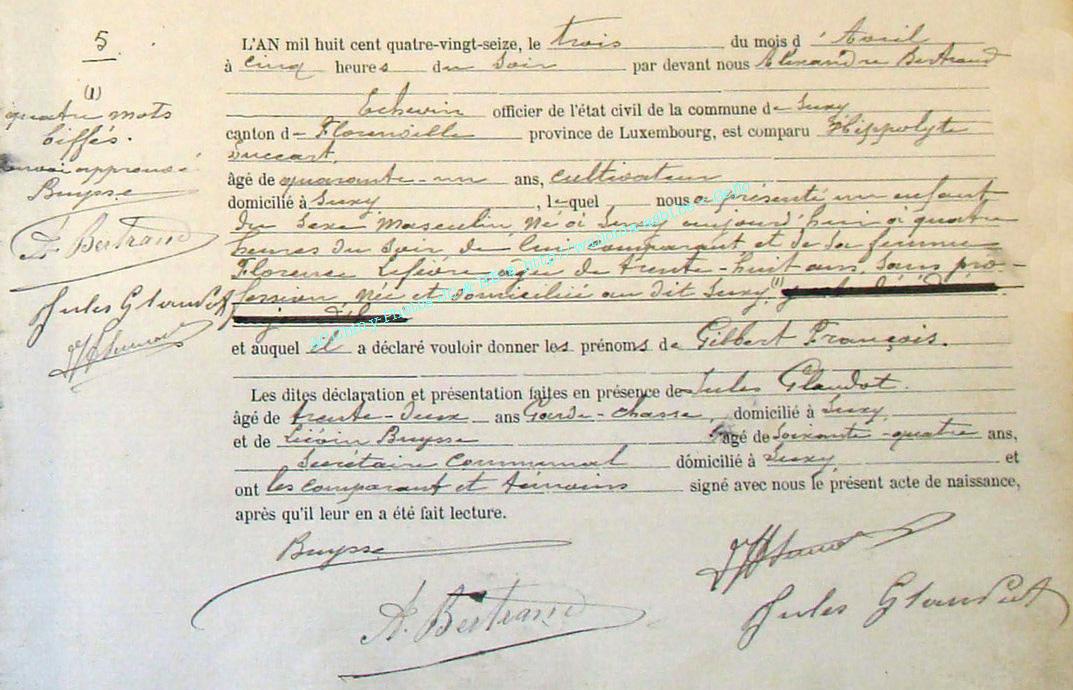 5
L'AN mil huit cent quatre-vingt-seize, le trois du mois d'Avril
à cinq heures du Soir par devant nous Alexandre Bertrand
Echevin officier de l'état civil de la commune de Suxy
canton de Florenville province de Luxembourg, est comparu Hippolyte
Succart,
âgé de quarante-un ans, cultivateur
domicilié à Suxy, lequel nous a présenté un enfant
du sexe masculin, Né à Suxy aujourd'hui à quatre
heures du soir, de lui comparant et de sa femme
Florence Lefèvre agée de trente-huit ans, sans pro-
fession, née et domiciliée au dit Suxy, (1)
et auquel il a déclaré vouloir donner les prénoms de Gilbert François.
Les dites déclaration et présentation faites en présence de Jules Glaudot.
âgé de trente-deux ans Garde-chasse, domicilié à Suxy
et de Buysse agé de Soixante-quatre ans,
Secrétaire Communal domicilié à Suxy et
ont les comparant et témoins signé avec nous le présent acte de naissance,
après qu'il leur en a été fait lecture.
(1)
quatre mots
biffés.
renvoi approuvé
Buysse
A. Bertrand
Jules Glaudot
Buysse
A. Bertrand
Jules Glaudot